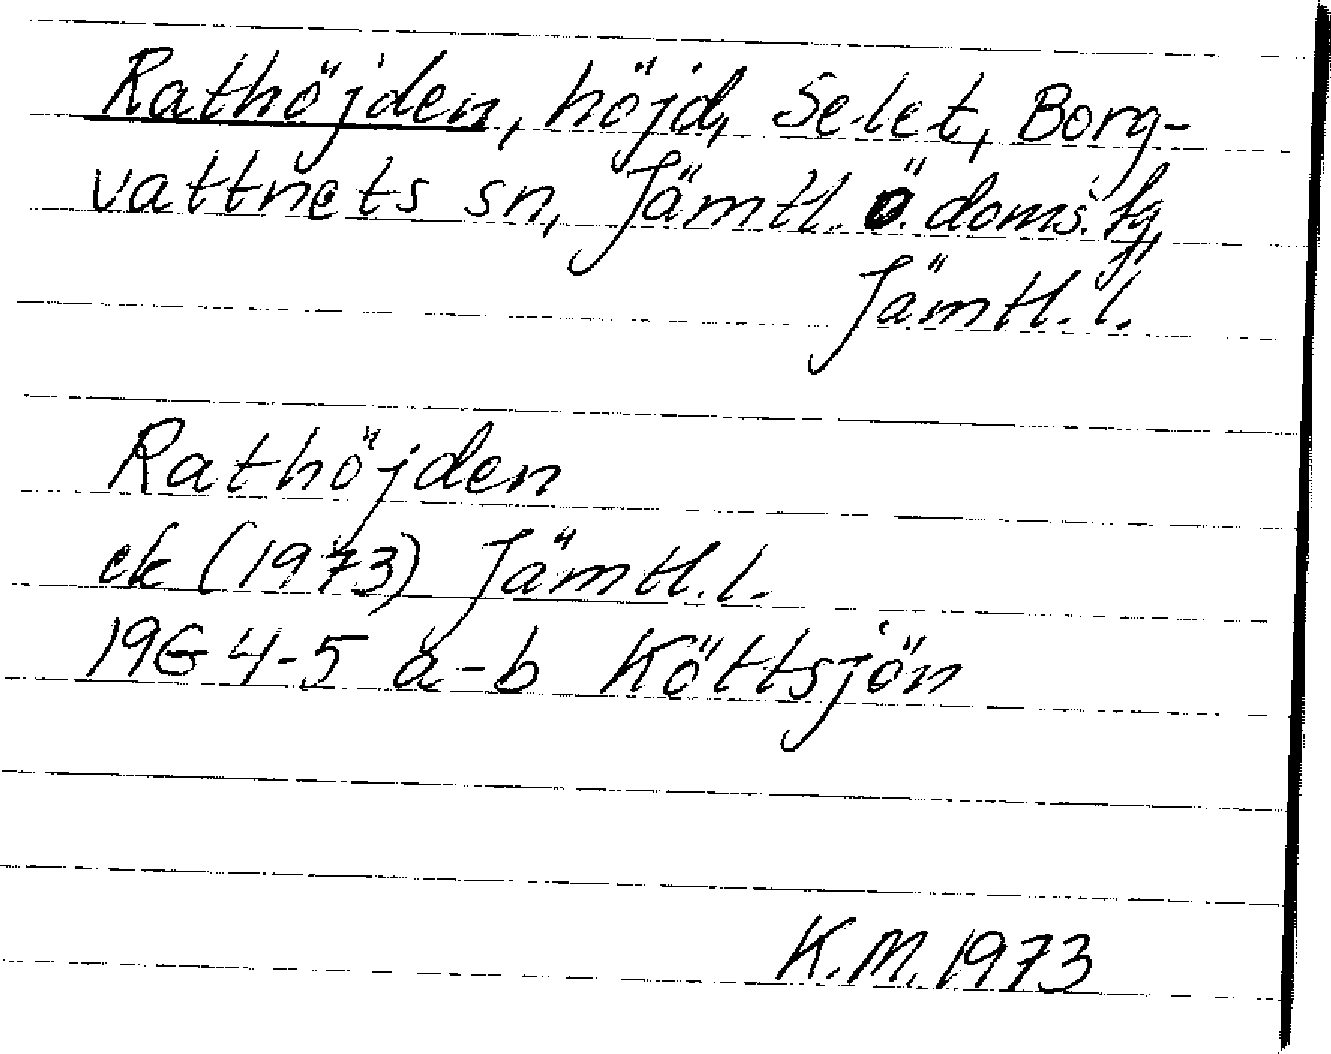 Rathöjden, höjd, Selet, Borg-
vattnets sn, Jämtl. ö. doms. tg,
Jämtl. l.
Rathöjden
ek (1973) Jämtl. l.
19G 4-5 a-b Köttsjön
K.M. 1973